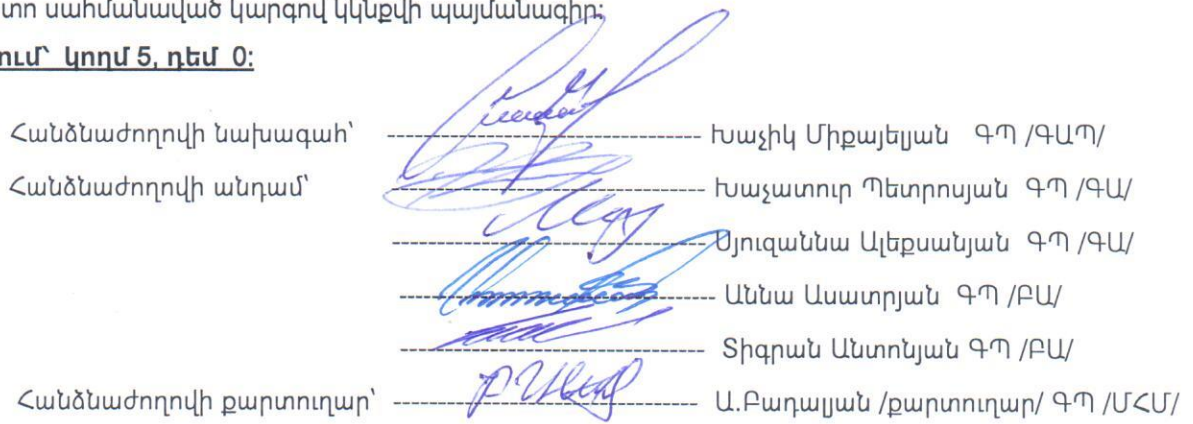 սահմանաված կարգով կկնքվի պայմանագիր:
կողմ 5, դեմ 0:
Հանձնաժողովի նախագահ՝ ---------- Խաչիկ Միքայելյան ԳՊ /ԳԱՊ/
Հանձնաժողովի անդամ՝ ---------- Խաչատուր Պետրոսյան ԳՊ /ԳԱ/
---------- Սյուզաննա Ալեքսանյան ԳՊ /ԳԱ/
---------- Աննա Ասատրյան ԳՊ /ԲԱ/
---------- Տիգրան Անտոնյան ԳՊ /ԲԱ/
Հանձնաժողովի քարտուղար՝ ---------- Ա.Բադալյան /քարտուղար/ ԳՊ /ՄՀՄ/